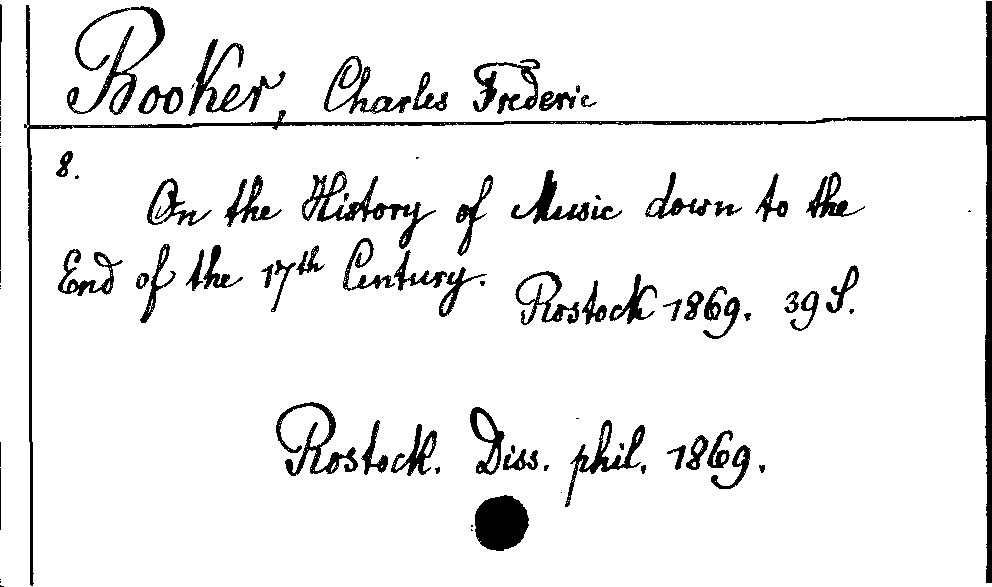 Booker, Charles Frederic
8.
On the History of Music down to the
End of the 17th Century.
Rostock 1869. 39 S.
Rostock. Diss. phil. 1869.